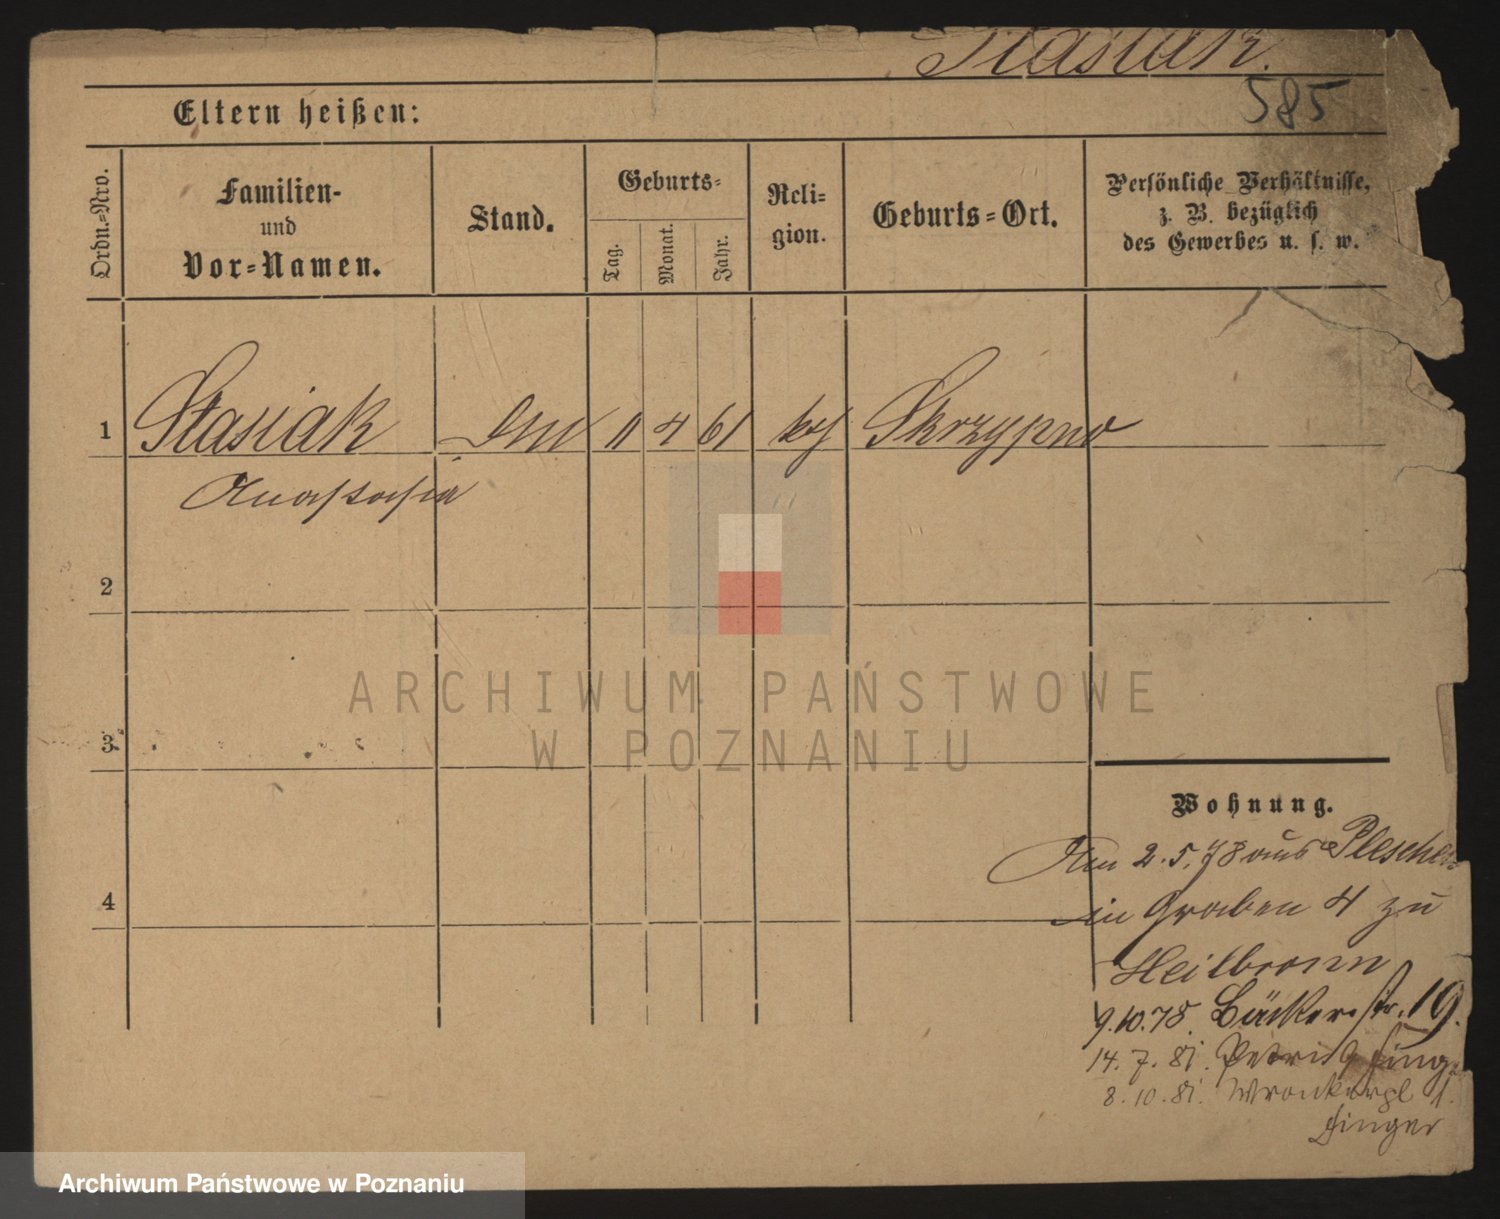 Stasiak.
585
Eltern heißen:
Ordn.=Nro.
Familien-
und
Vor=Namen.
Stand.
Geburts=
Tag.
Monat.
Jahr.
Reli=
gion.
Geburts=Ort.
Persönliche Verhältnisse,
z. B. bezüglich
des Gewerbes u. s. w.
1 Stasiak 11 4 61 kth Skrzypno
Anastasia
2
3
4
Wohnung.
Am 2.5.78 aus Pleschen
in Graben 4 zu
Heilbronn
9.10.78. Bäckerstr. 19.
14.7.81.
8.10.81. Wronkerpl 1.
Finger
ARCHIWUM PAŃSTWOWE
W POZNANIU
Archiwum Państwowe w Poznaniu